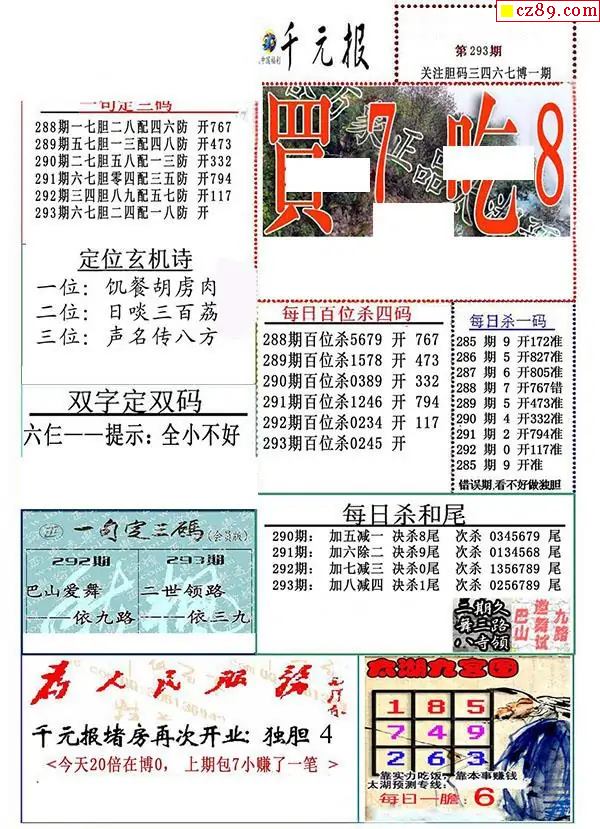 cz89.com
中国福利
千元报
第293期
关注胆码三四六七博一期
一句定三码
288期一七胆二八配四六防 开767
289期五七胆一三配四八防 开473
290期二七胆五八配一三防 开332
291期六七胆零四配三五防 开794
292期三四胆八九配五七防 开117
293期六七胆二四配一八防 开
買7吃8
定位玄机诗
一位: 饥餐胡虏肉
二位: 日啖三百荔
三位: 声名传八方
双字定双码
六仨——提示: 全小不好
每日百位杀四码
288期百位杀5679 开 767
289期百位杀1578 开 473
290期百位杀0389 开 332
291期百位杀1246 开 794
292期百位杀0234 开 117
293期百位杀0245 开
每日杀一码
285 期 9 开172准
286 期 5 开827准
287 期 6 开805准
288 期 7 开767错
289 期 5 开473准
290 期 4 开332准
291 期 2 开794准
292 期 0 开117准
285 期 9 开准
错误期,看不好做独胆
每日杀和尾
290期: 加五减一 决杀8尾 次杀 0345679 尾
291期: 加六除二 决杀9尾 次杀 0134568 尾
292期: 加七减三 决杀0尾 次杀 1356789 尾
293期: 加八减四 决杀1尾 次杀 0256789 尾
一句定三碼(会员版)
292期 293期
巴山爱舞 二世领路
——依九路 ——依三九
二期久
舞三路
八寺领
邀舞试
巴山
九路
为人民服务
千元报堵房再次开业: 独胆 4
<今天20倍在博0, 上期包7小赚了一笔 >
太湖九宫图
1 8 5
7 4 9
2 6 3
靠实力吃饭,靠本事赚钱
太湖预测专线:
每日一胆: 6